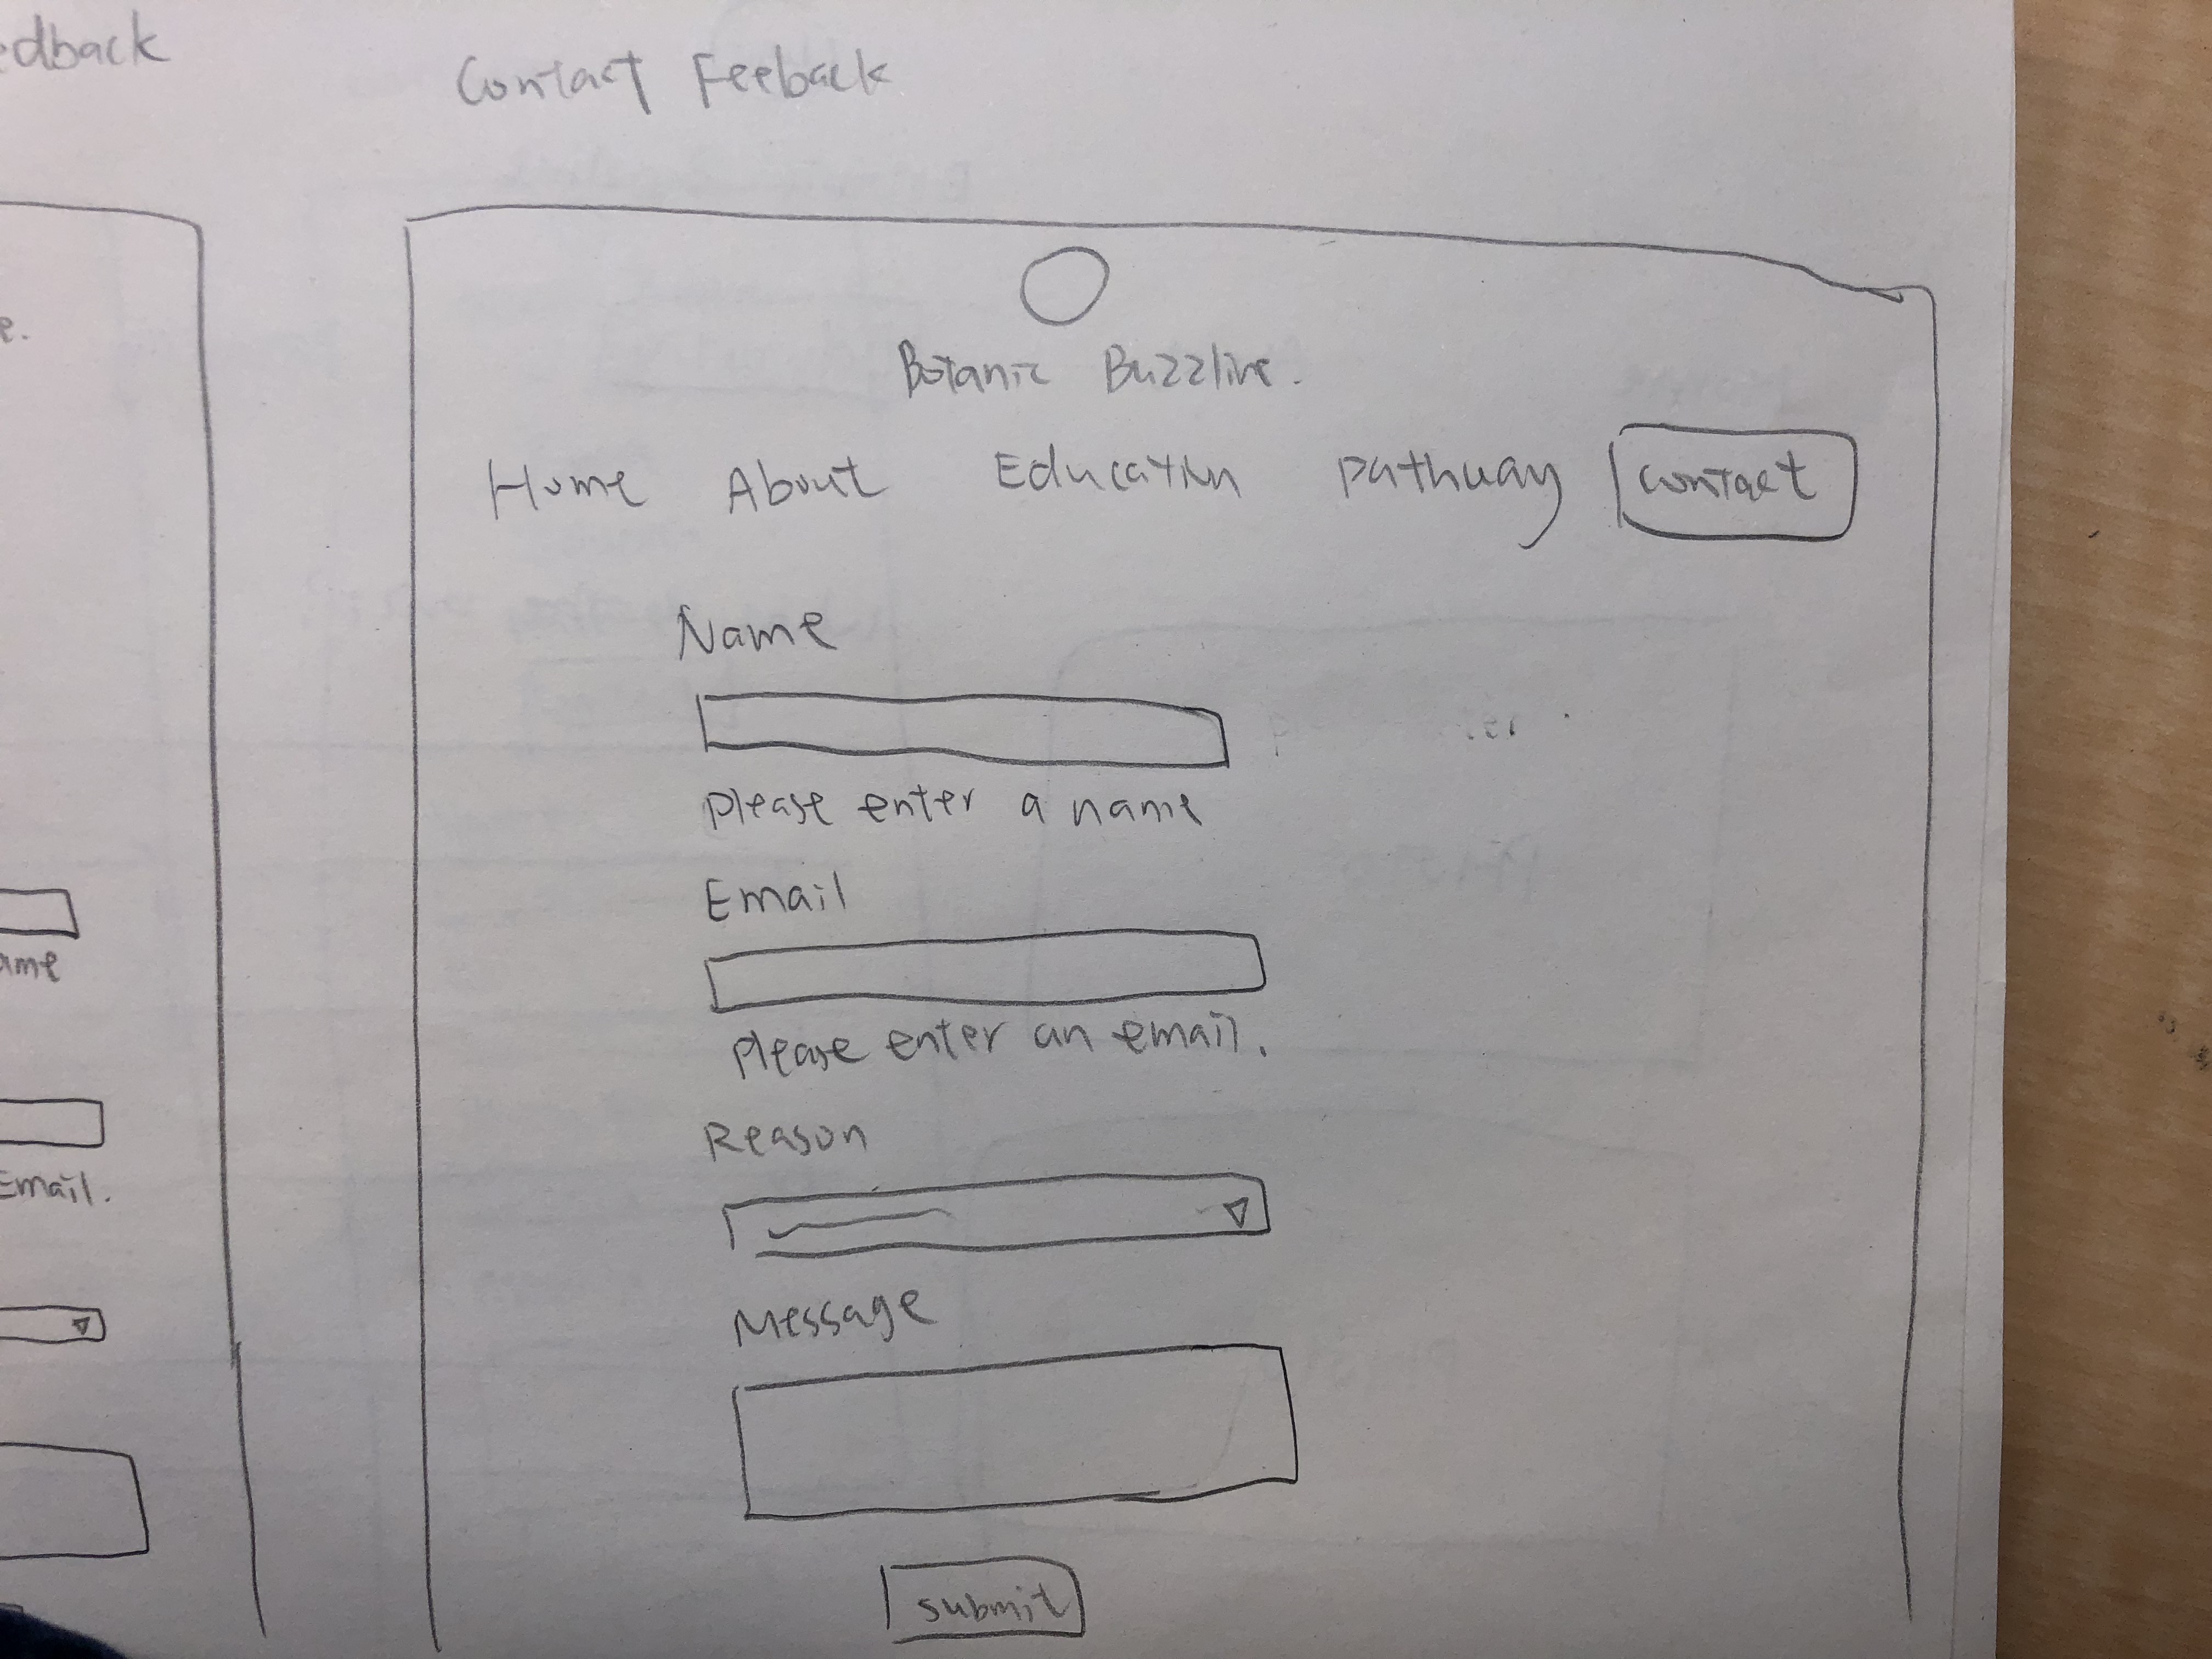 edback
Contact Feeback
e.
Botanic Buzzline.
Home About Education pathway contact
Name
please enter a name
Email
ame
please enter an email.
Reason
Email.
Message
submit